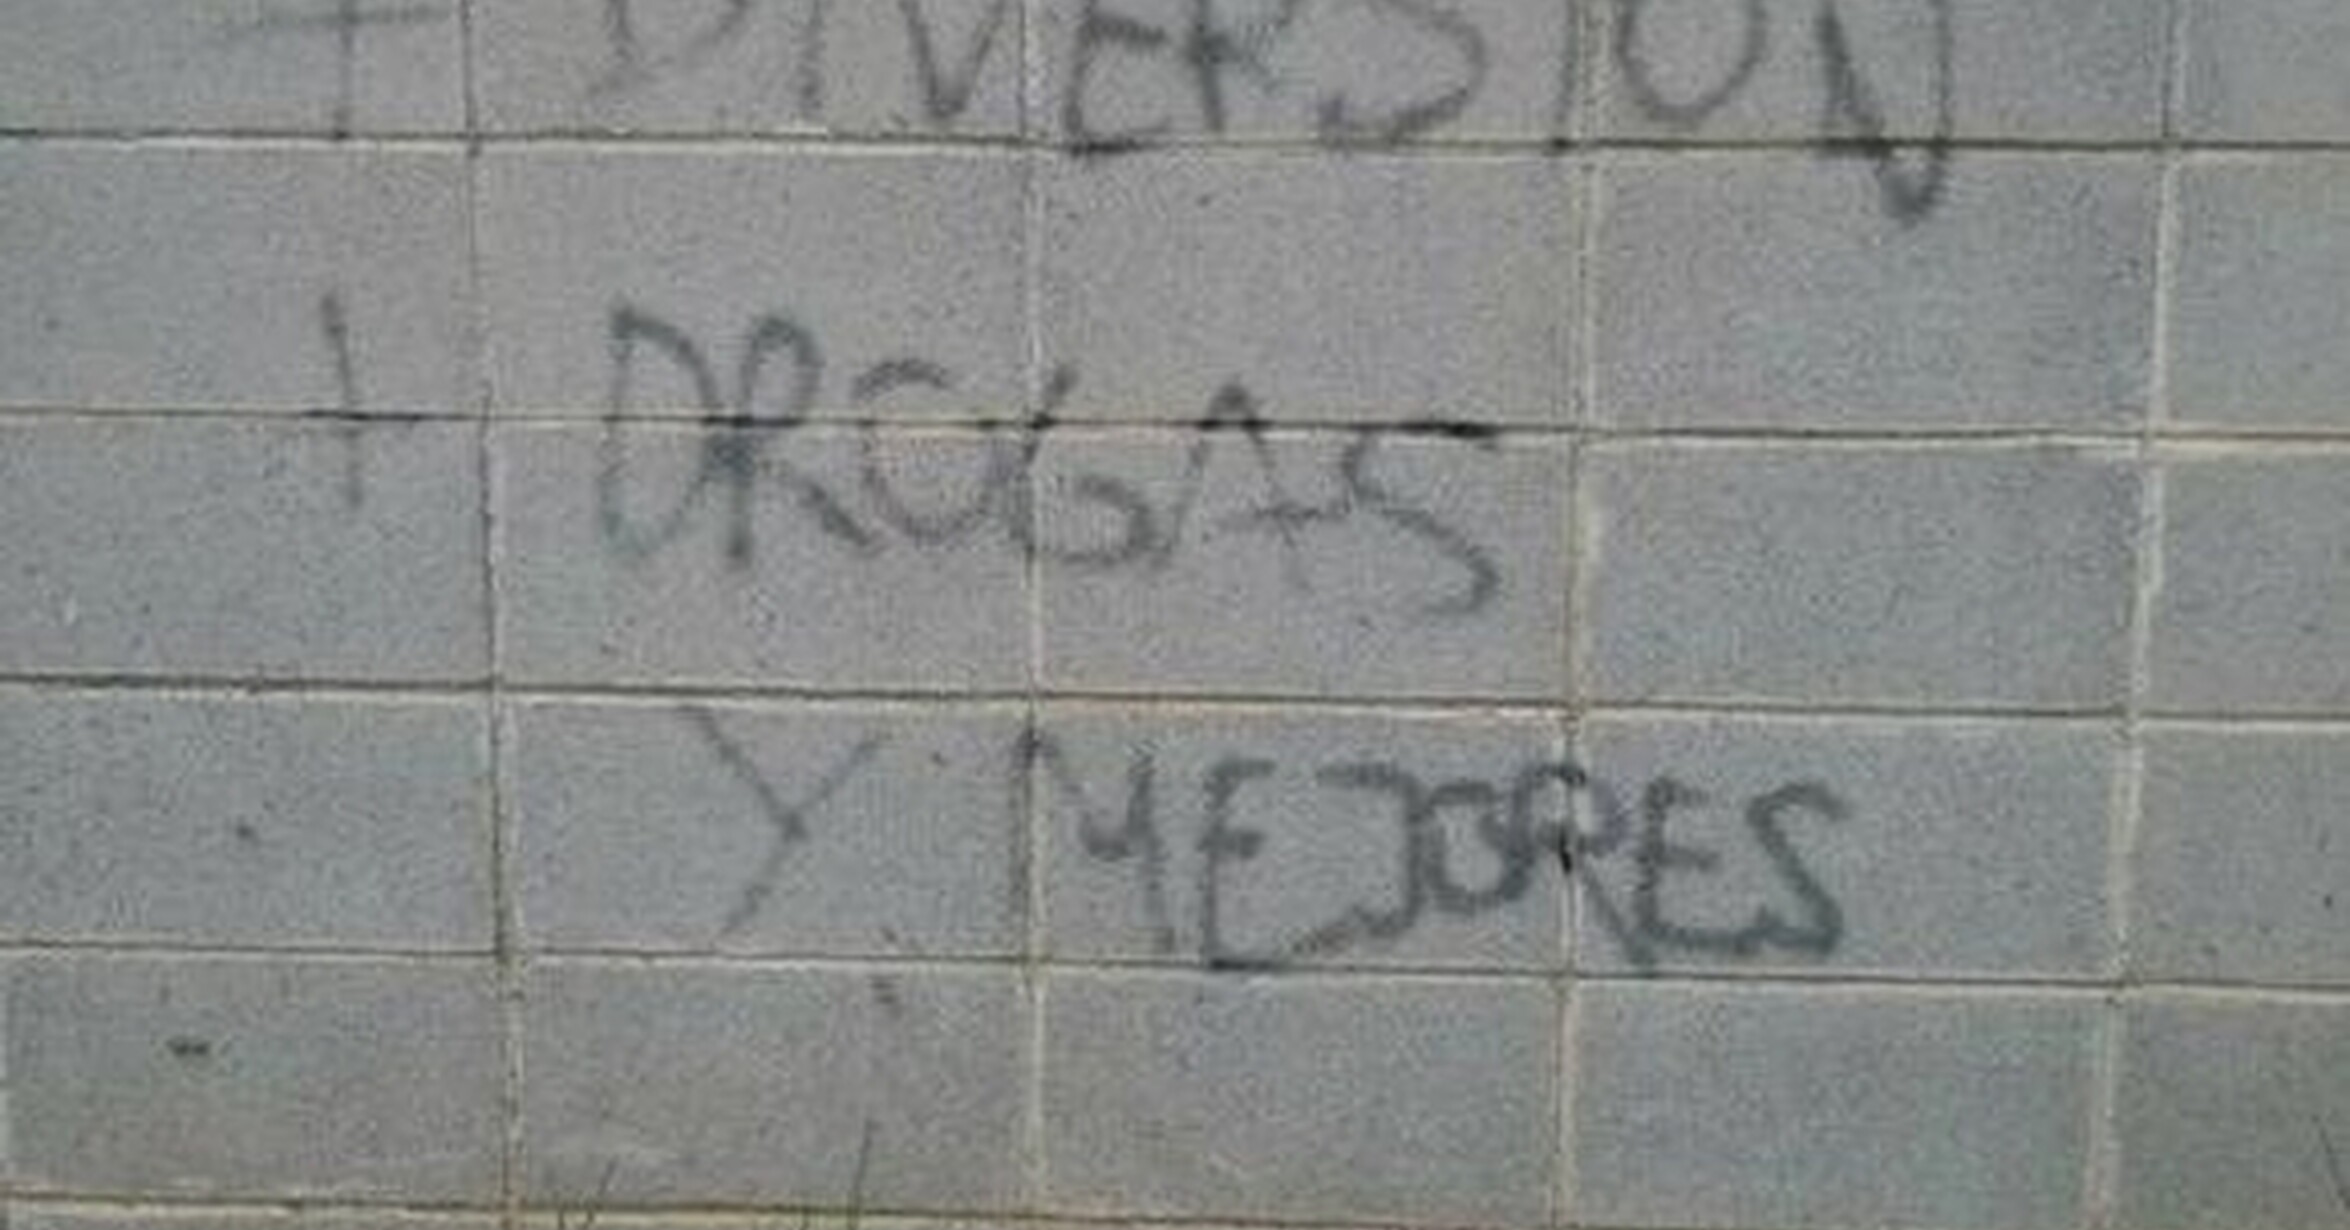 + DIVERSION
+ DROGAS
Y MEJORES